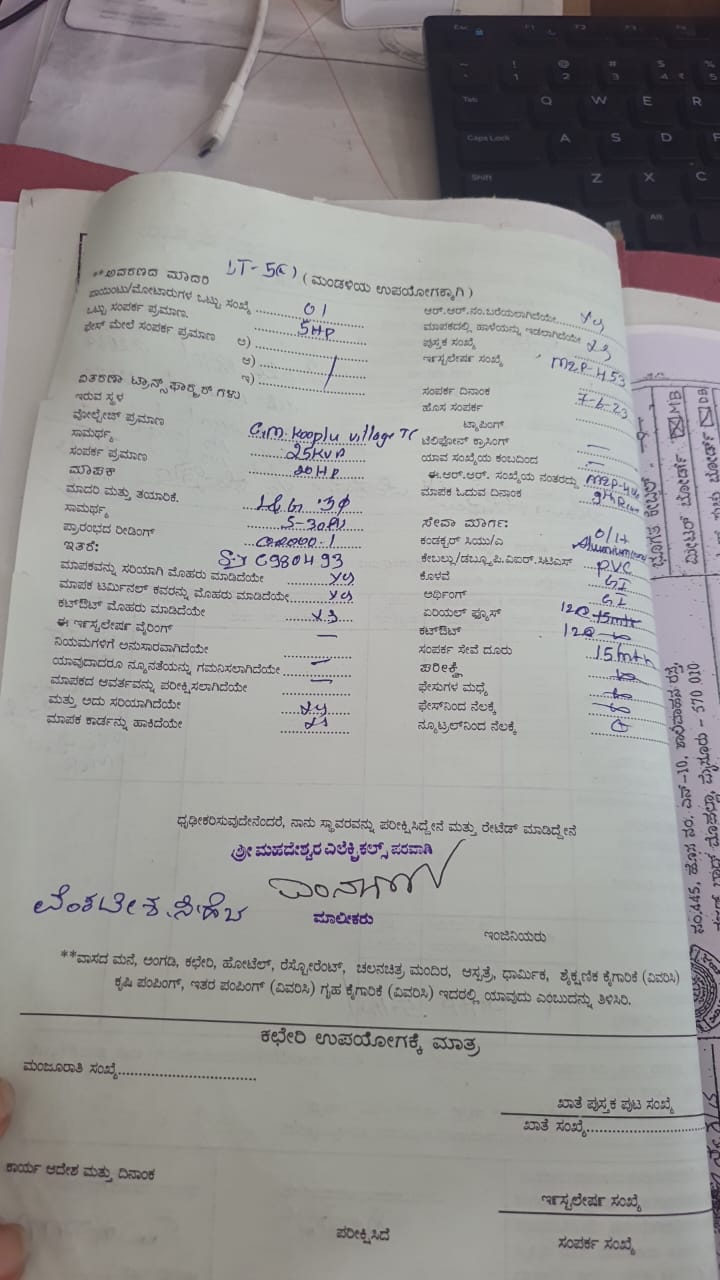 **ಆವರಣದ ಮಾದರಿ LT-5(a) (ಮಂಡಳಿಯ ಉಪಯೋಗಕ್ಕಾಗಿ)
ಪಾಯಿಂಟು/ಮೋಟಾರುಗಳ ಒಟ್ಟು ಸಂಖ್ಯೆ 01
ಒಟ್ಟು ಸಂಪರ್ಕ ಪ್ರಮಾಣ 5HP
ಫೇಸ್ ಮೇಲೆ ಸಂಪರ್ಕ ಪ್ರಮಾಣ ಅ)
ಆ)
ಇ)
ವಿತರಣಾ ಟ್ರಾನ್ಸ್‌ಫಾರ್ಮರ್ ಗಳು
ಇರುವ ಸ್ಥಳ C.M. Kooplu village TC
ವೋಲ್ಟೇಜ್ ಪ್ರಮಾಣ
ಸಾಮರ್ಥ್ಯ 25KVA
ಸಂಪರ್ಕ ಪ್ರಮಾಣ 20HP
ಮಾಪಕ
ಮಾದರಿ ಮತ್ತು ತಯಾರಿಕೆ. L&G 3Φ
ಸಾಮರ್ಥ್ಯ 5-30A
ಪ್ರಾರಂಭದ ರೀಡಿಂಗ್ 00000.1
ಇತರೆ: C980493
ಮಾಪಕವನ್ನು ಸರಿಯಾಗಿ ಮೊಹರು ಮಾಡಿದೆಯೇ yes
ಮಾಪಕ ಟರ್ಮಿನಲ್ ಕವರನ್ನು ಮೊಹರು ಮಾಡಿದೆಯೇ yes
ಕಟ್‌ಔಟ್ ಮೊಹರು ಮಾಡಿದೆಯೇ yes
ಈ ಇನ್ಸ್ಟಲೇಷನ್ ವೈರಿಂಗ್ —
ನಿಯಮಗಳಿಗೆ ಅನುಸಾರವಾಗಿದೆಯೇ
ಯಾವುದಾದರೂ ನ್ಯೂನತೆಯನ್ನು ಗಮನಿಸಲಾಗಿದೆಯೇ —
ಮಾಪಕದ ಆವರ್ತವನ್ನು ಪರೀಕ್ಷಿಸಲಾಗಿದೆಯೇ —
ಮತ್ತು ಅದು ಸರಿಯಾಗಿದೆಯೇ yes
ಮಾಪಕ ಕಾರ್ಡನ್ನು ಹಾಕಿದೆಯೇ yes
ಆರ್.ಆರ್.ನಂ.ಬರೆಯಲಾಗಿದೆಯೇ yes
ಮಾಪಕದಲ್ಲಿ ಹಾಳೆಯನ್ನು ಇಡಲಾಗಿದೆಯೇ yes
ಪುಸ್ತಕ ಸಂಖ್ಯೆ
ಇನ್ಸ್ಟಲೇಷನ್ ಸಂಖ್ಯೆ MZP-453
ಸಂಪರ್ಕ ದಿನಾಂಕ 7-6-23
ಹೊಸ ಸಂಪರ್ಕ
ಟ್ಯಾಪಿಂಗ್
ಟೆಲಿಫೋನ್ ಕ್ರಾಸಿಂಗ್ —
ಯಾವ ಸಂಖ್ಯೆಯ ಕಂಬದಿಂದ —
ಈ.ಆರ್.ಆರ್. ಸಂಖ್ಯೆಯ ನಂತರದ್ದು
ಮಾಪಕ ಓದುವ ದಿನಾಂಕ
ಸೇವಾ ಮಾರ್ಗ: O/H
ಕಂಡಕ್ಟರ್ ಸಿಯು/ಎ
ಕೇಬಲ್ಲು/ಡಬ್ಲ್ಯೂ.ಪಿ.ವಿಐಆರ್.ಸಿಟಿಎಸ್ PVC
ಕೊಳವೆ GI
ಅರ್ಥಿಂಗ್ GI
ಏರಿಯಲ್ ಫ್ಯೂಸ್
ಕಟ್‌ಔಟ್
ಸಂಪರ್ಕ ಸೇವೆ ದೂರು 15mth
ಪರೀಕ್ಷೆ
ಫೇಸುಗಳ ಮಧ್ಯೆ
ಫೇಸ್‌ನಿಂದ ನೆಲಕ್ಕೆ
ನ್ಯೂಟ್ರಲ್‌ನಿಂದ ನೆಲಕ್ಕೆ
ಧೃಢೀಕರಿಸುವುದೇನೆಂದರೆ, ನಾನು ಸ್ಥಾವರವನ್ನು ಪರೀಕ್ಷಿಸಿದ್ದೇನೆ ಮತ್ತು ರೇಟೆಡ್ ಮಾಡಿದ್ದೇನೆ
ಶ್ರೀ ಮಹದೇಶ್ವರ ಎಲೆಕ್ಟ್ರಿಕಲ್ಸ್ ಪರವಾಗಿ
ಮಾಲೀಕರು
ಇಂಜಿನಿಯರು
**ವಾಸದ ಮನೆ, ಅಂಗಡಿ, ಕಛೇರಿ, ಹೋಟೆಲ್, ರೆಸ್ಟೋರೆಂಟ್, ಚಲನಚಿತ್ರ ಮಂದಿರ, ಆಸ್ಪತ್ರೆ, ಧಾರ್ಮಿಕ, ಶೈಕ್ಷಣಿಕ ಕೈಗಾರಿಕೆ (ವಿವರಿಸಿ)
ಕೃಷಿ ಪಂಪಿಂಗ್, ಇತರ ಪಂಪಿಂಗ್ (ವಿವರಿಸಿ) ಗೃಹ ಕೈಗಾರಿಕೆ (ವಿವರಿಸಿ) ಇದರಲ್ಲಿ ಯಾವುದು ಎಂಬುದನ್ನು ತಿಳಿಸಿರಿ.
ಕಛೇರಿ ಉಪಯೋಗಕ್ಕೆ ಮಾತ್ರ
ಮಂಜೂರಾತಿ ಸಂಖ್ಯೆ
ಖಾತೆ ಪುಸ್ತಕ ಪುಟ ಸಂಖ್ಯೆ
ಖಾತೆ ಸಂಖ್ಯೆ
ಕಾರ್ಯ ಆದೇಶ ಮತ್ತು ದಿನಾಂಕ
ಇನ್ಸ್ಟಲೇಷನ್ ಸಂಖ್ಯೆ
ಪರೀಕ್ಷಿಸಿದೆ
ಸಂಪರ್ಕ ಸಂಖ್ಯೆ